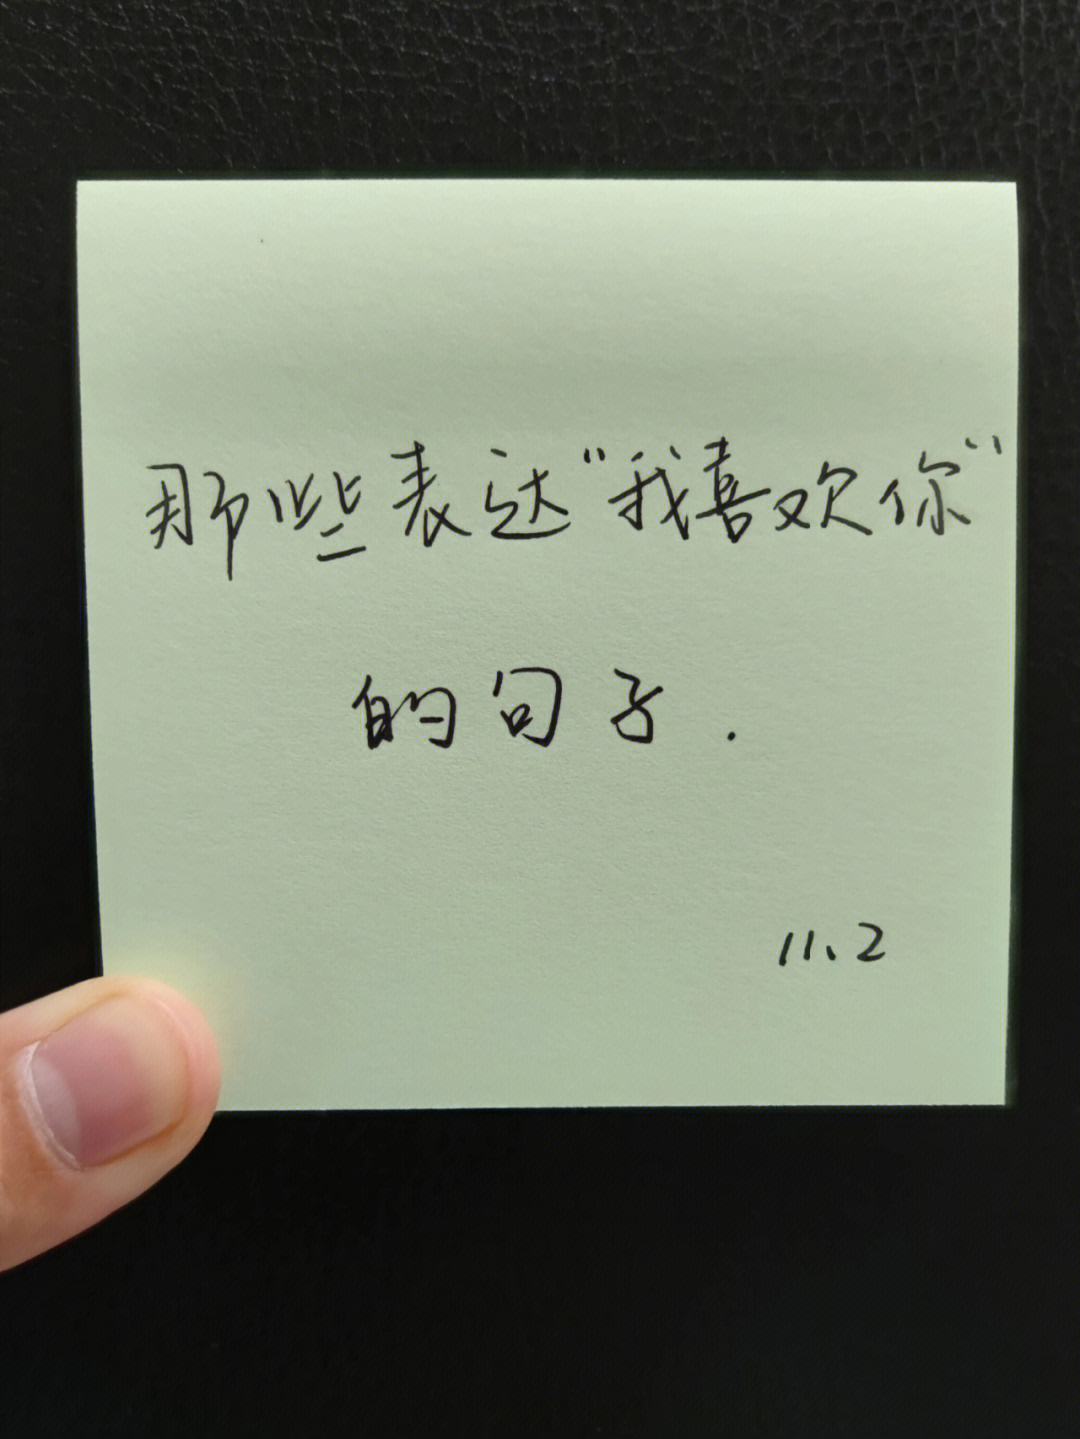 那些表达“我喜欢你”
的句子.
11、2